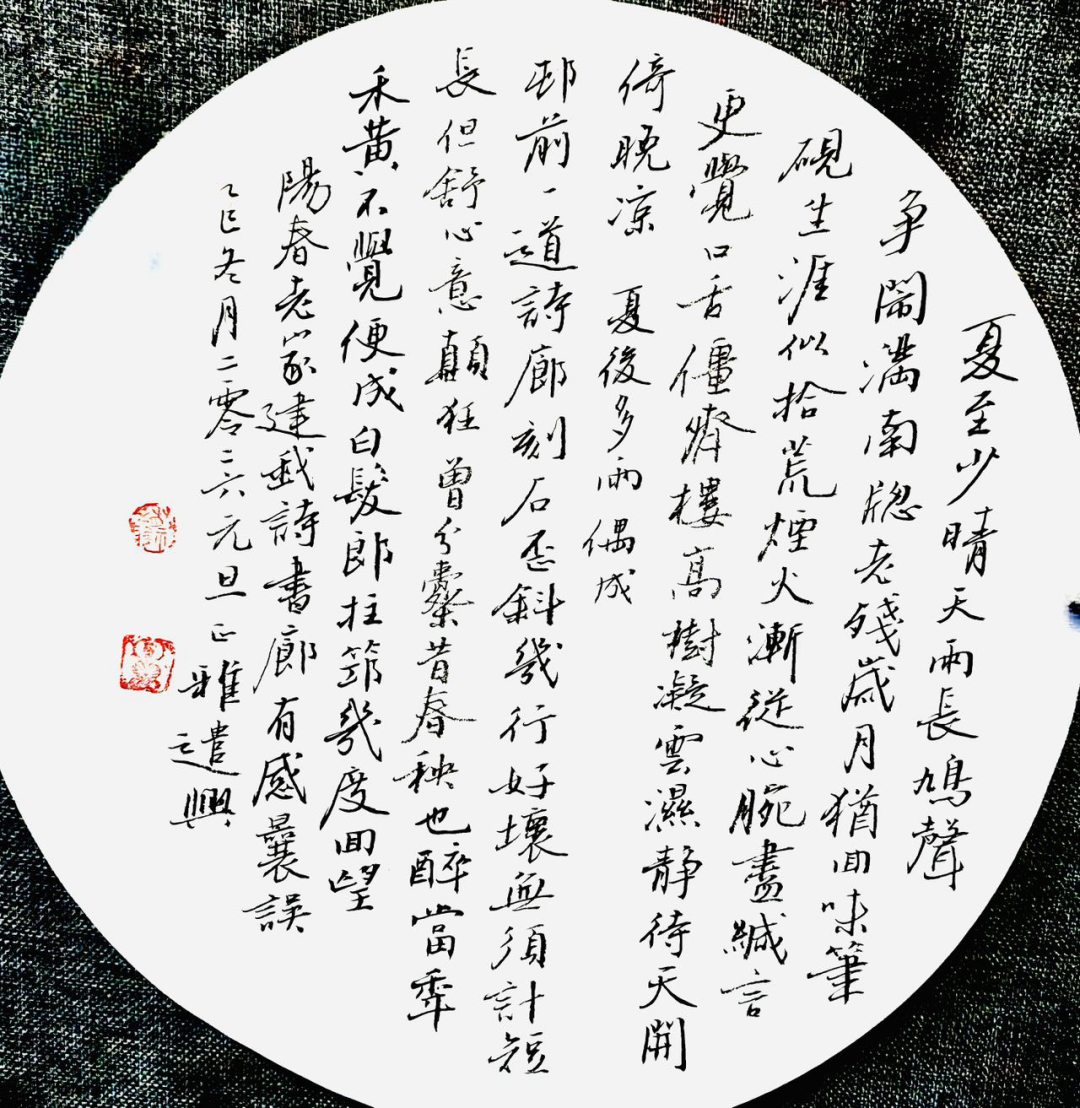 夏至少晴天雨長鳩聲
争鬧滿南牕老殘歲月猶回味筆
硯生涯似拾荒煙火漸從心腕盡緘言
更覺口舌僵瘠樓高樹凝雲濕静待天開
倚晚凉 夏後多雨偶成
邨前一道詩廊刻石歪斜幾行好壞無須計短
長但舒心意顛狂曾分囊昔春秧也醉當年
禾黄不覺便成白髮郎拄筇幾度回望
陽春老家建我詩書廊有感曩誤
乙巳冬月二零二六元旦正雅遣興